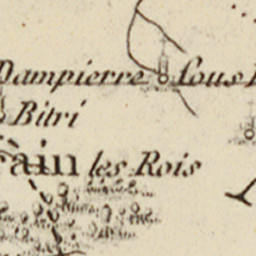 Dampierre Sous
Bitri
ain les Rois